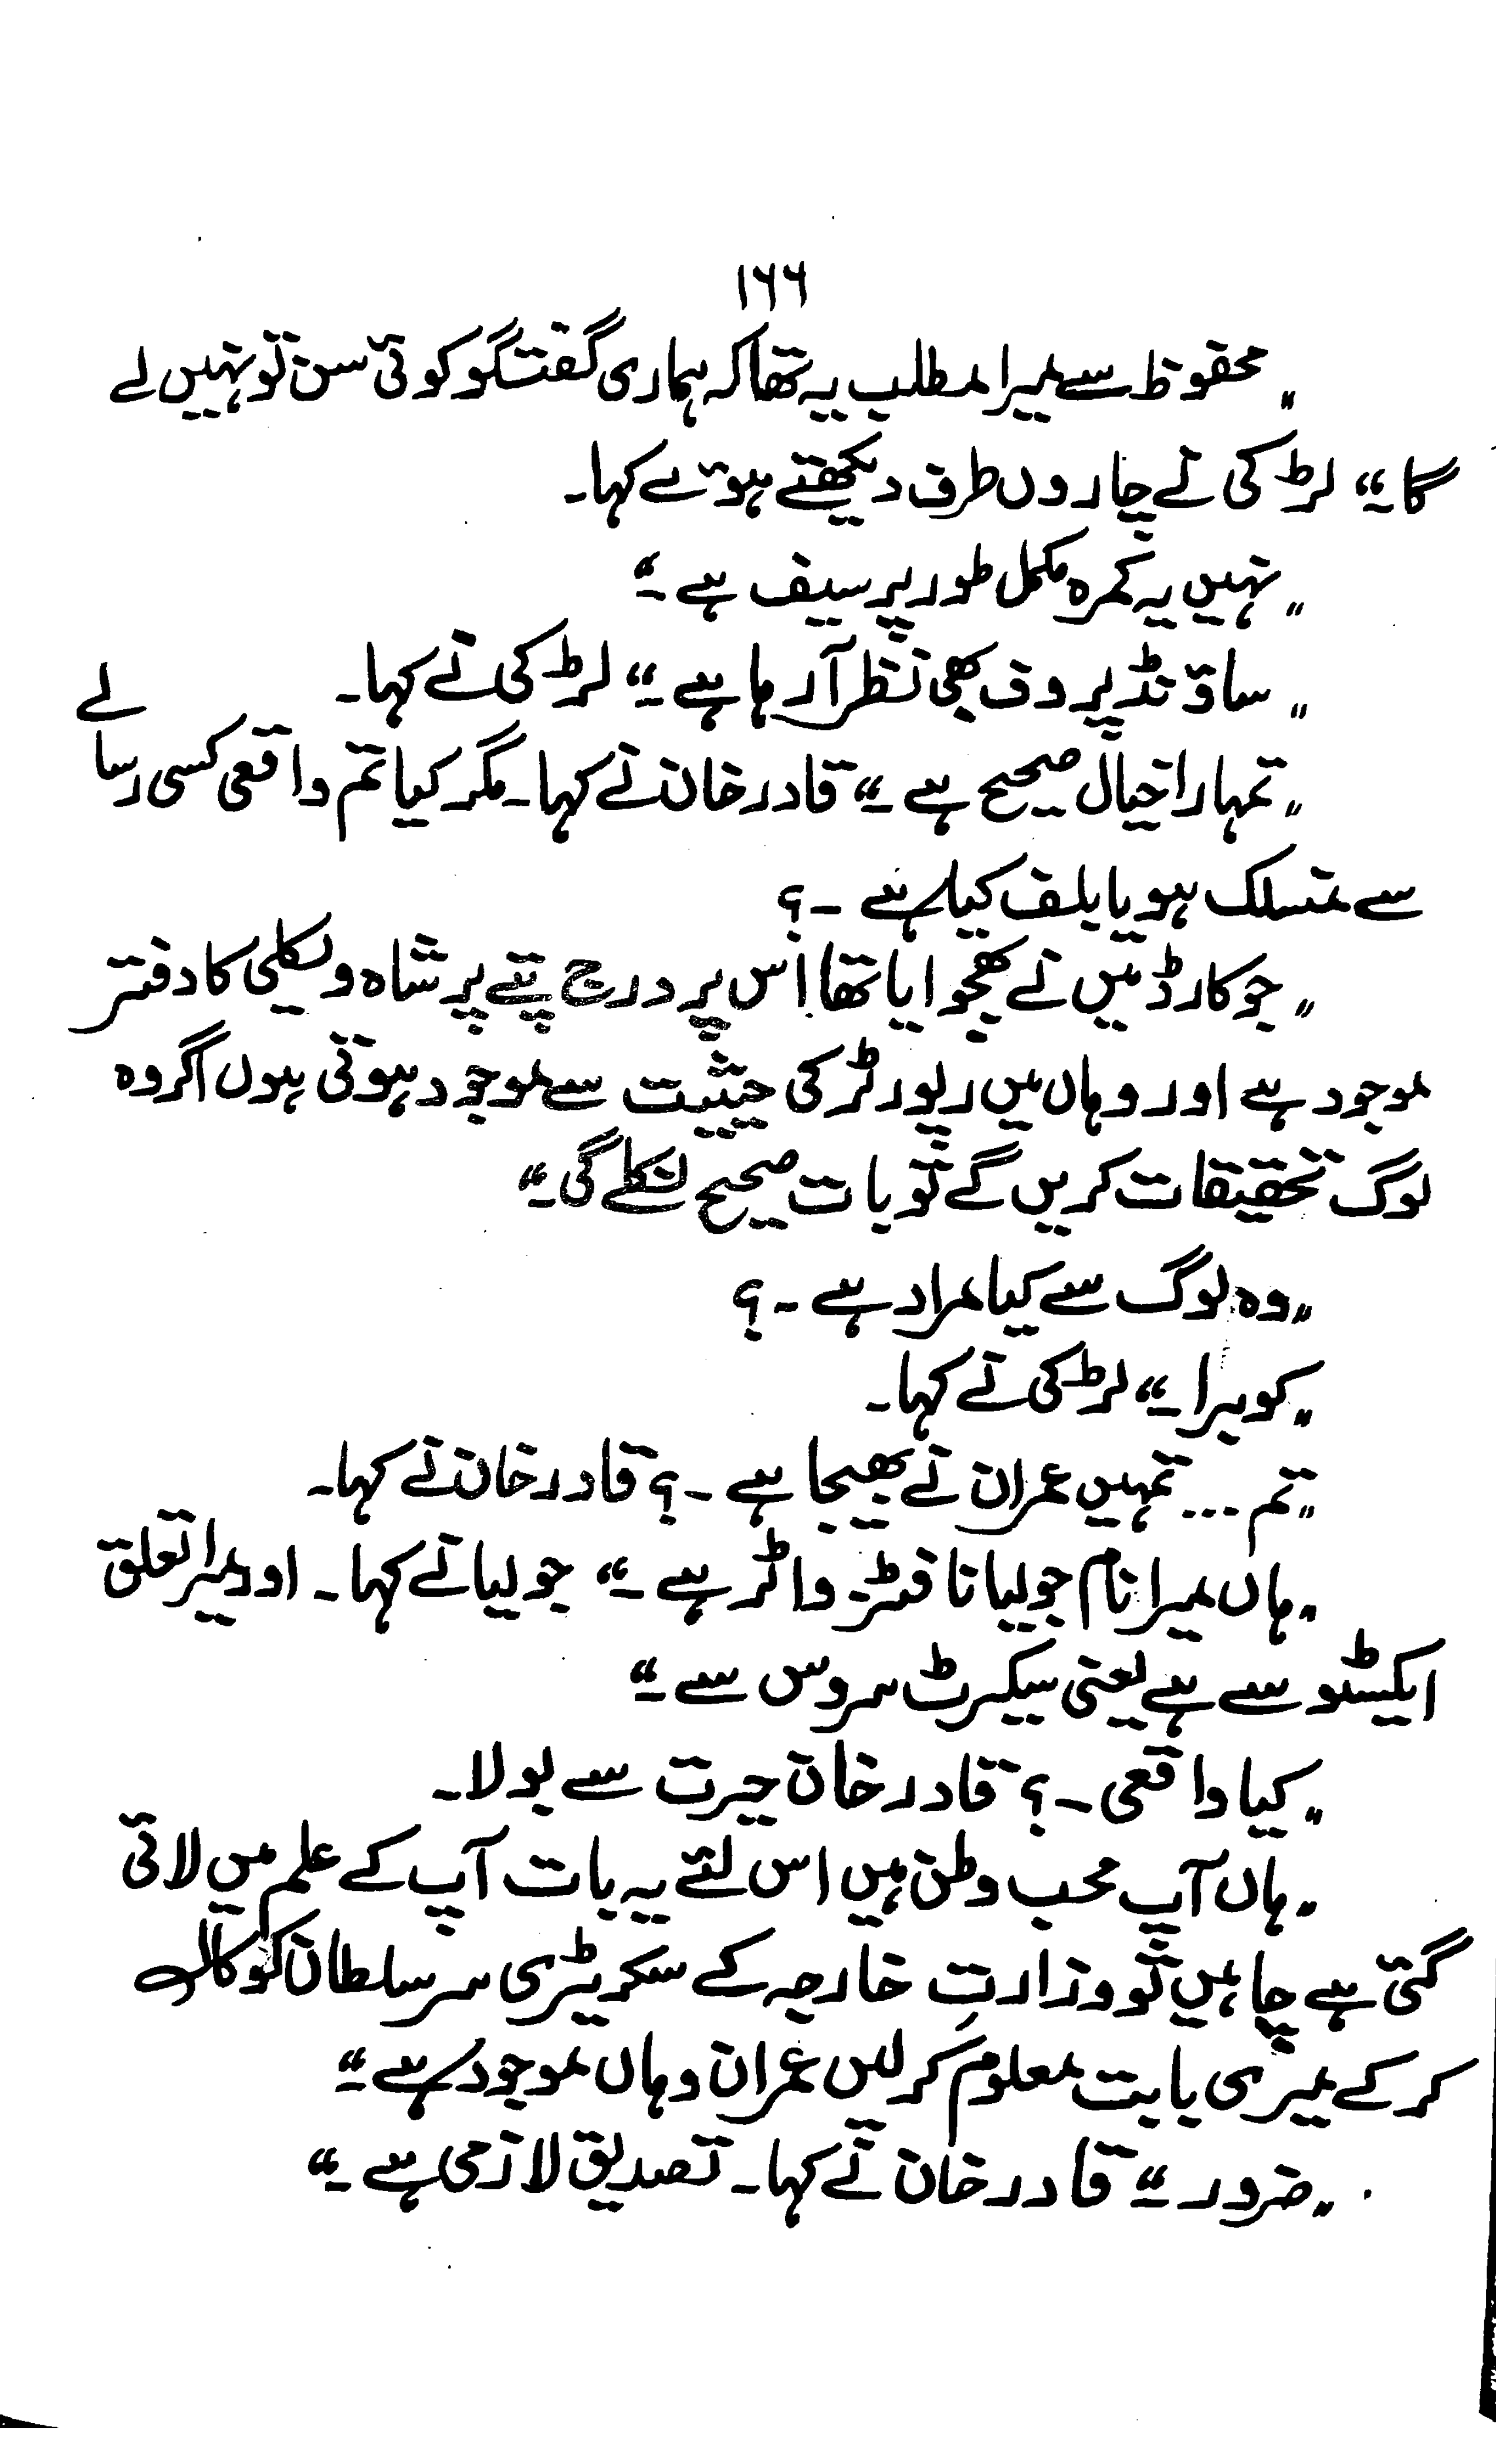 ۱۶۶
„محفوظ سے میرا مطلب یہ تھا کہ ہماری گفتگو کوئی سن تو نہیں لے
گا۔“ لڑکی نے چاروں طرف دیکھتے ہوئے کہا۔
„نہیں یہ کمرہ مکمل طور پر سیف ہے۔“
„ساؤنڈ پروف بھی نظر آ رہا ہے۔“ لڑکی نے کہا۔
„تمہارا خیال صحیح ہے۔“ قادر خان نے کہا۔ مگر کیا تم واقعی کسی رسالے
سے منسلک ہو یا بلف کیا ہے۔؟
„جو کارڈ میں نے بھجوایا تھا اُس پر درج پتے پر شاہ ویکلی کا دفتر
موجود ہے اور وہاں میں رپورٹر کی حیثیت سے موجود ہوتی ہوں اگر وہ
لوگ تحقیقات کریں گے تو بات صحیح نکلے گی۔“
„وہ لوگ سے کیا مراد ہے۔؟
„کوبرا۔“ لڑکی نے کہا۔
„تم... تمہیں عمران نے بھیجا ہے۔؟ قادر خان نے کہا۔
„ہاں میرا نام جولیانا فٹز واٹر ہے۔“ جولیا نے کہا۔ اور میرا تعلق
ایکسٹو سے ہے یعنی سیکرٹ سروس سے۔“
„کیا واقعی۔؟ قادر خان حیرت سے بولا۔
„ہاں آپ محب وطن ہیں اس لئے یہ بات آپ کے علم میں لائی
گئی ہے چاہیں تو وزارتِ خارجہ کے سکریٹری سر سلطان کو کال
کر کے میری بابت معلوم کر لیں عمران وہاں موجود ہے۔“
„ضرور۔“ قادر خان نے کہا۔ تصدیق لازمی ہے۔“